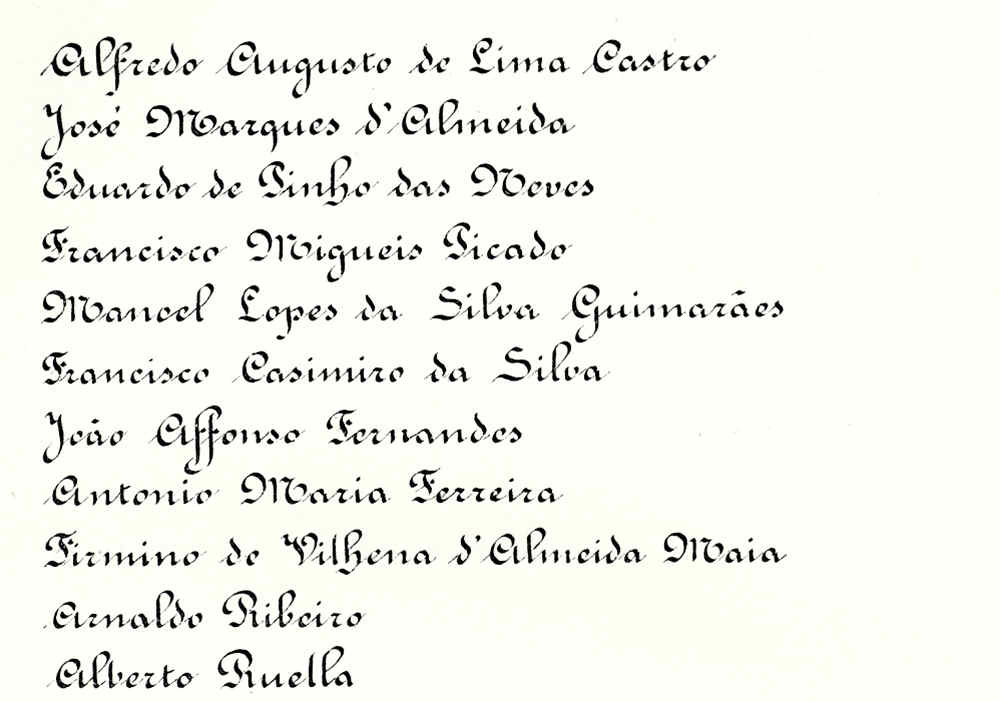 Alfredo Augusto de Lima Castro
José Marques d'Almeida
Eduardo de Pinho das Neves
Francisco Migueis Picado
Manoel Lopes da Silva Guimarães
Francisco Casimiro da Silva
João Affonso Fernandes
Antonio Maria Ferreira
Firmino de Vilhena d'Almeida Maia
Arnaldo Ribeiro
Alberto Ruella